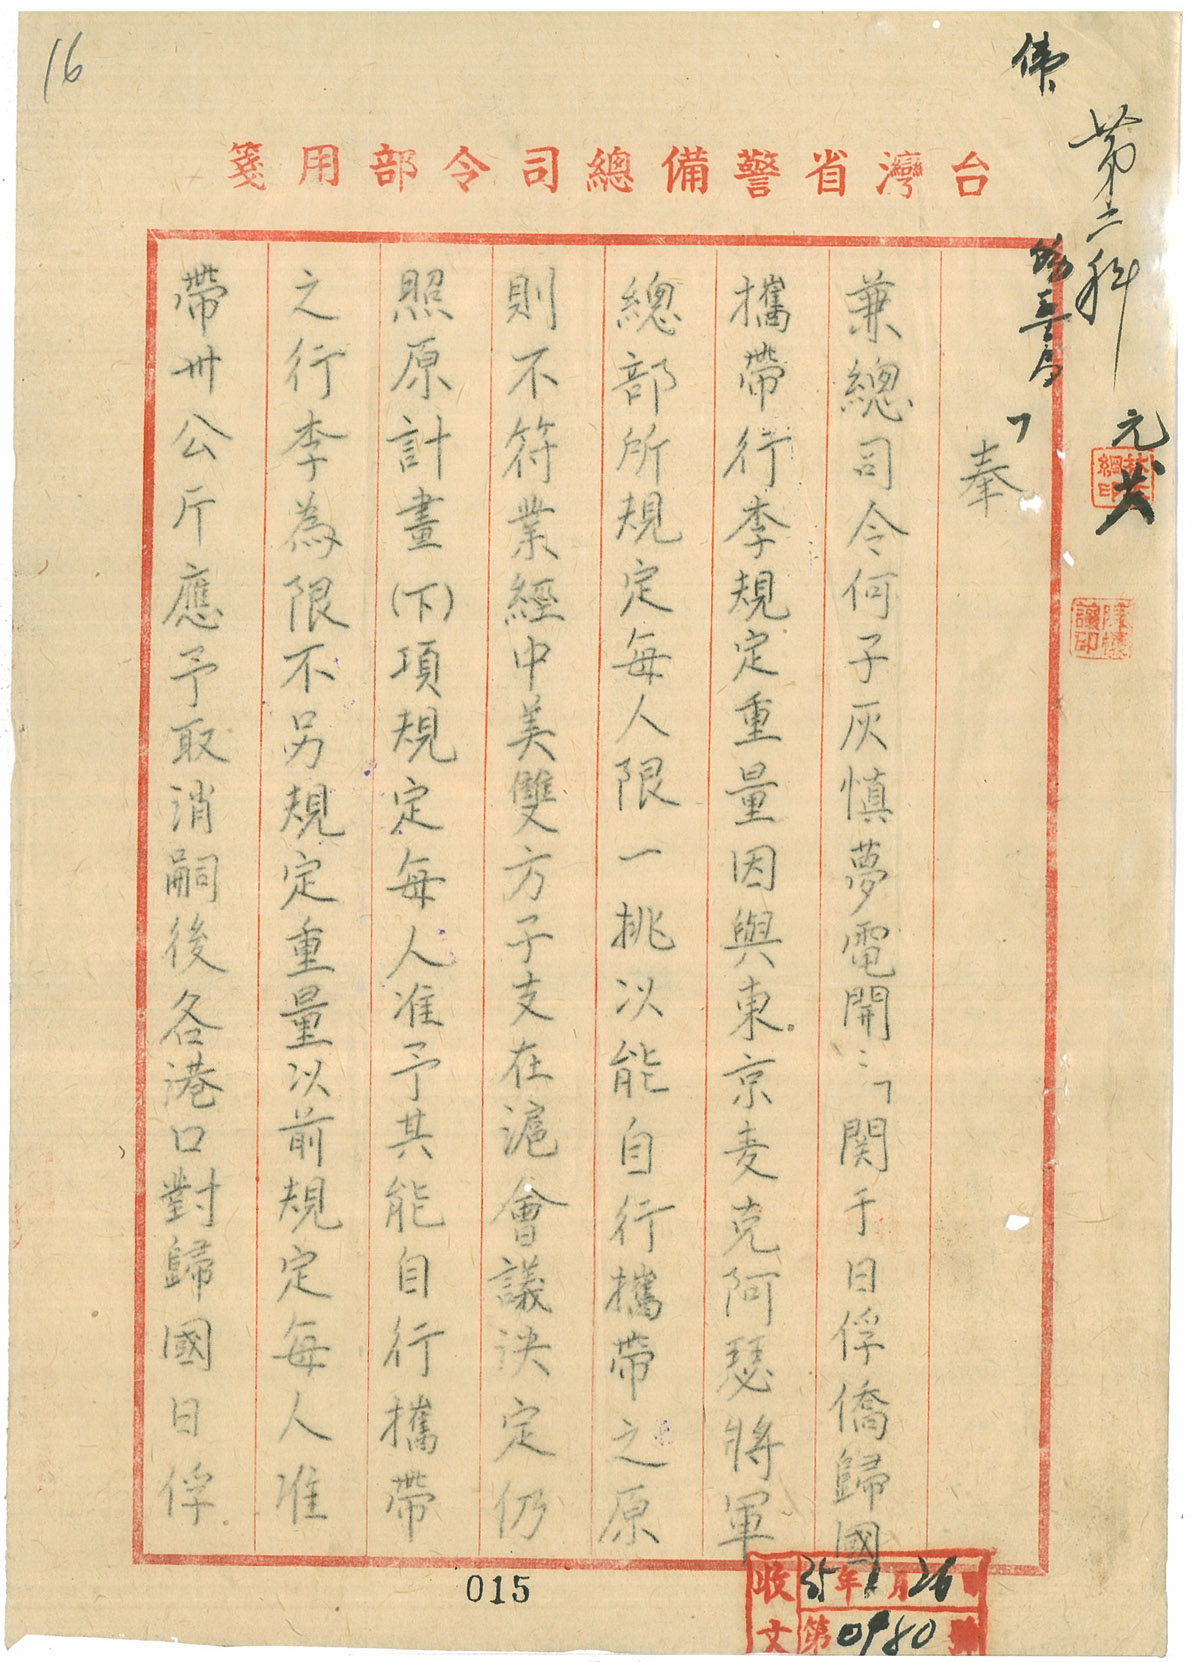 16
第二科
台灣省警備總司令部用箋
奉
兼總司令何子灰慎夢電開：「関于日俘僑歸國
攜帶行李規定重量因與東京麦克阿瑟將軍
總部所規定每人限一挑以能自行攜帶之原
則不符業經中美雙方子支在滬會議決定仍
照原計畫(下)項規定每人准予其能自行攜帶
之行李為限不另規定重量以前規定每人准
帶卅公斤應予取消嗣後各港口對歸國日俘
015
收文 35年1月26日
第0980號